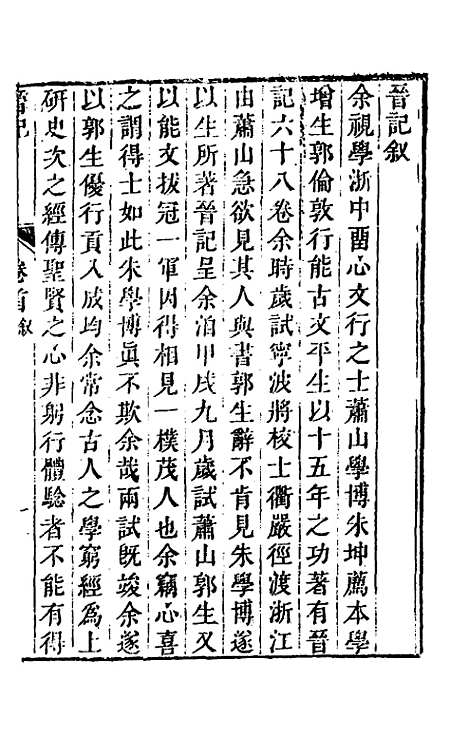 晉記叙
余視學浙中畱心文行之士蕭山學博朱坤薦本學
增生郭倫敦行能古文平生以十五年之功著有晉
記六十八卷余時歲試寧波將校士衢嚴徑渡浙江
由蕭山急欲見其人與書郭生辭不肯見朱學博遂
以生所著晉記呈余洎甲戌九月歲試蕭山郭生又
以能文拔冠一軍因得相見一樸茂人也余竊心喜
之謂得士如此朱學博眞不欺余哉兩試旣竣余遂
以郭生優行貢入成均余常念古人之學窮經爲上
研史次之經傳聖賢之心非躬行體驗者不能有得
晉記
卷首叙
一